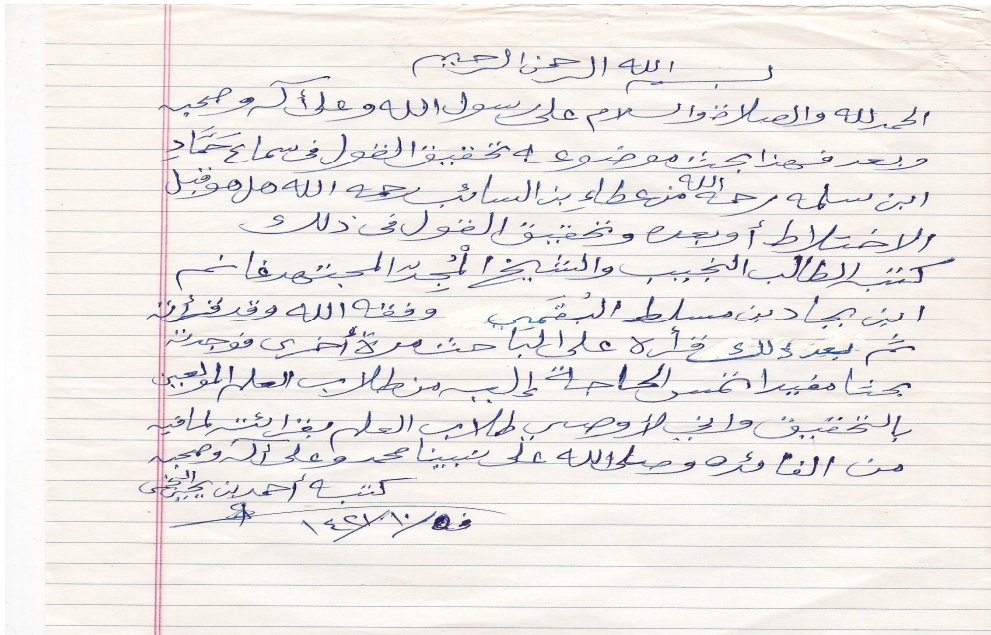 بسم الله الرحمن الرحيم
الحمد لله والصلاة والسلام على رسول الله وعلى آله وصحبه
وبعد فهذا بحث موضوعه تحقيق القول في سماع حَمَّادِ
ابن سلمه رحمه الله من عطاء بن السائب رحمه الله هل هو قبل
الاختلاط أو بعده وتحقيق القول في ذلك
كتبه الطالب النجيب والشيخ المُجِد المجتهد غانم
ابن بجاد بن مسلط البُقَمِي وفقه الله وقد قرأته
ثم بعد ذلك قرأه على الباحث مرة أخرى فوجدته
بحثا مفيدا تمس الحاجة إليه من طلاب العلم المولعين
بالتحقيق واني لأوصي طلاب العلم بقرائته لما فيه
من الفائده وصلى الله على نبينا محمد وعلى آله وصحبه
كتبه أحمد بن يحيى النجمي
في /١٠/١٤٢١